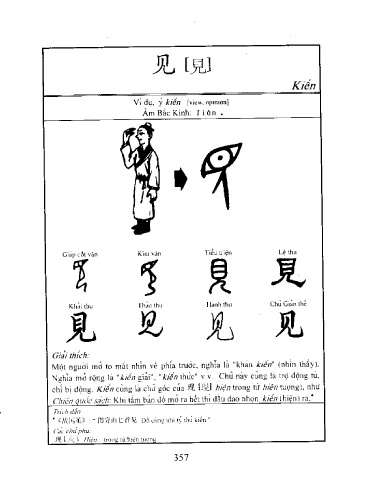 见 [見]
Kiến
Ví dụ, ý kiến [view, opinion]
Âm Bắc Kinh: Jiàn.
Giáp cốt văn Kim văn Tiểu triện Lệ thư
見 見
Khải thư Thảo thư Hành thư Chữ Giản thể
見 见 见 见
Giải thích:
Một người mở to mắt nhìn về phía trước, nghĩa là "khan kiến" (nhìn thấy).
Nghĩa mở rộng là "kiến giải", "kiến thức" v.v. Chữ này cũng là trợ động từ,
chỉ bị động. Kiến cũng là chữ gốc của 现[現] hiện trong từ hiện tượng), như
Chiến quốc sách: Khi tấm bản đồ mở ra hết thì đầu dao nhọn kiến (hiện) ra.
Trích dẫn
Đồ cùng nhi tỷ thủ kiến"
Các chữ phụ:
Hiện: trong từ hiện tượng
357